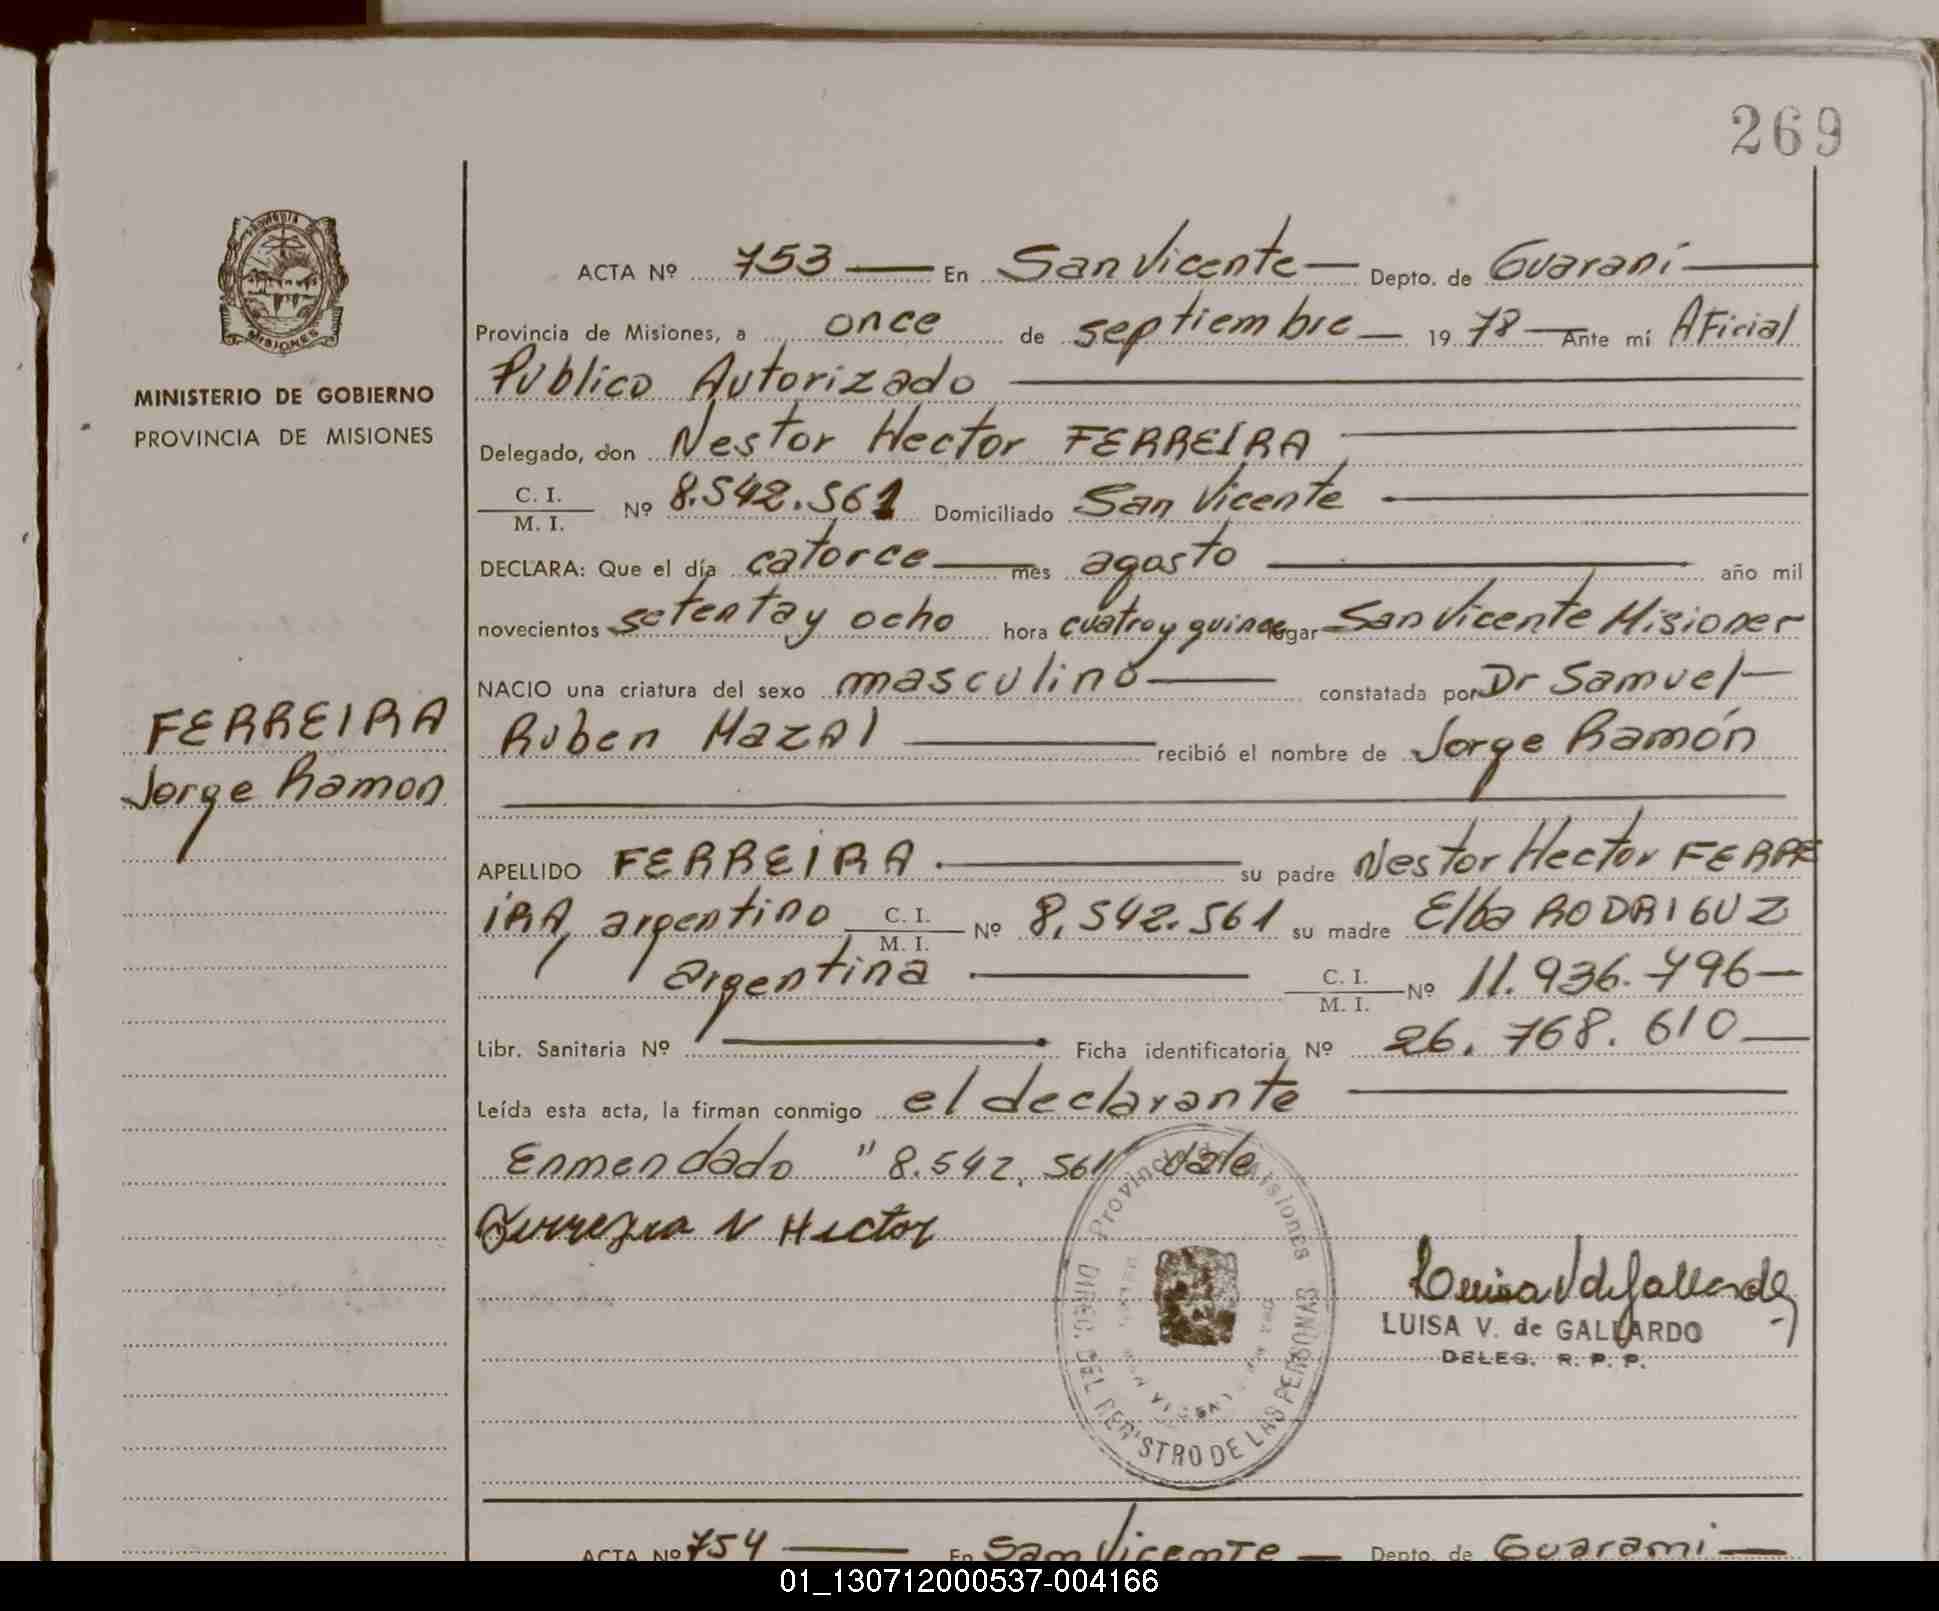 269
ACTA Nº 753 En San Vicente Depto. de Guarani
Provincia de Misiones, a once de septiembre 1978 Ante mí Aficial
Publico Autorizado
MINISTERIO DE GOBIERNO
PROVINCIA DE MISIONES
Delegado, don Nestor Hector FERREIRA
C. I.
M. I. Nº 8.542.561 Domiciliado San Vicente
DECLARA: Que el día catorce mes agosto año mil
novecientos setenta y ocho hora cuatro y quince lugar San Vicente Misiones
NACIO una criatura del sexo masculino constatada por Dr Samuel
Ruben Mazal recibió el nombre de Jorge Ramón
FERREIRA
Jorge Ramon
APELLIDO FERREIRA su padre Nestor Hector FERRE
IRA, argentino C. I. M. I. Nº 8.542.561 su madre Elba RODRIGUZ
argentina C. I. M. I. Nº 11.936.796
Libr. Sanitaria Nº Ficha identificatoria Nº 26.768.610
Leída esta acta, la firman conmigo el declarante
Enmendado "8.542.561" vale
Ferreyra N Hector
Provincia de Misiones
DIREC. DEL REGISTRO DE LAS PERSONAS
Luisa V de Gallardo
LUISA V. de GALLARDO
DELEG. R. P. P.
ACTA Nº 754 En San Vicente Depto. de Guarami
01_130712000537-004166